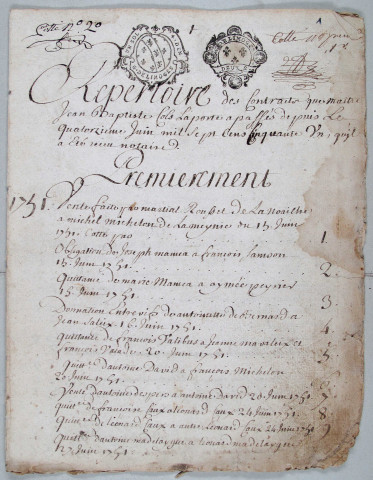 Cotte N° 20
Cotte
Repertoire des Contrats que maitre
Jean Baptiste Colo Laporte a passés depuis Le
Quatorzieme Juin mil Sept Cens Cinquante Un, quil
a été receu notaire
Premierement
1751. Vente faitte par martial Rousset de La noaille
a michel micheton de Lameynie du 15 Juin
1751. Cotté par 1
Obligation de Joseph mameca a françois Samson
15 Juin 1751. 2
Quittance de marie Mameca a aymée peyrier
15 Juin 1751. 3
Donnation Entre vifs de antoinette de Bernard a
Jean 16 Juin 1751. 4
Quittance de françois Talibas a Jeanne mavaleix et
françois 20 Juin 1751. 5
Quitt.e d'antoine David a françois Micheton
20 Juin 1751. 6
Vente d'antoine a antoine David 20 Juin 1751 7
Quitt.e de françoise faux a Léonard faux 24 Juin 1751 8
Quitt.e de Léonard faux a autre Léonard faux 24 Juin 1751 9
Quitt.e d'antoine madelargne a Léonard madelargne
27 Juin 1751